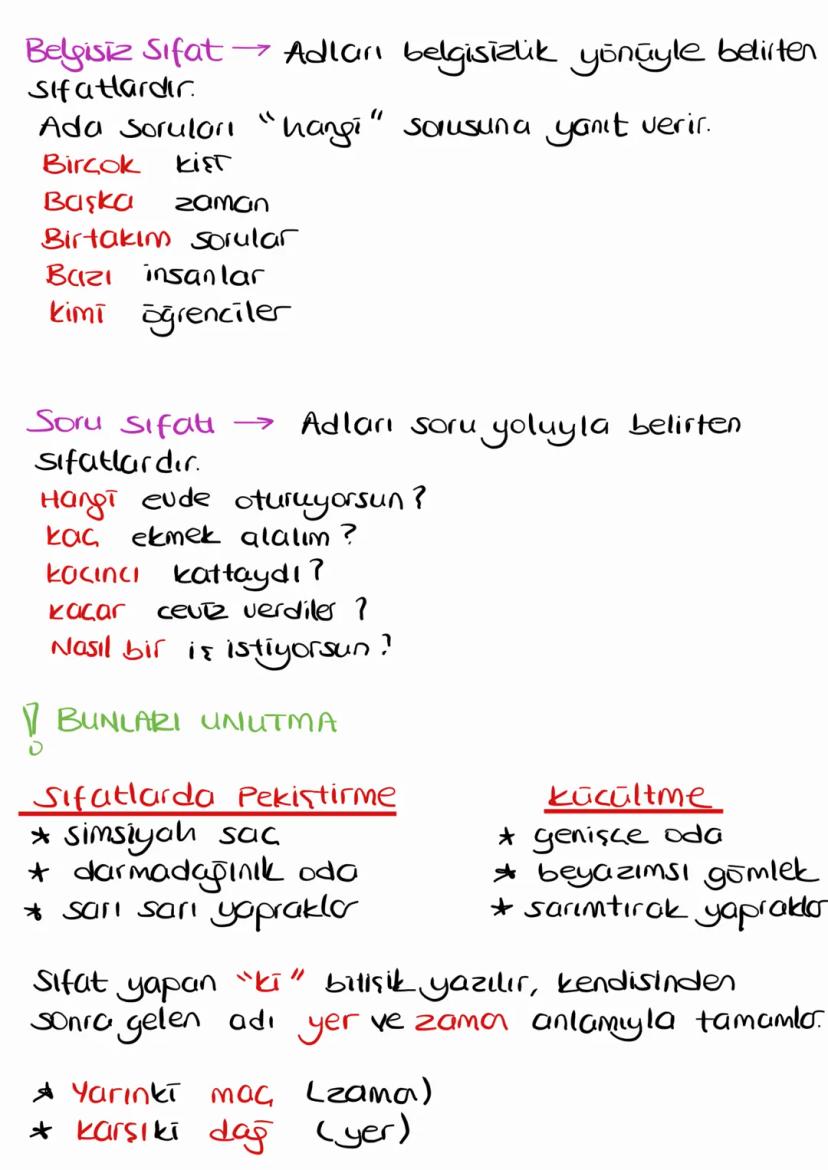 Belgisiz Sıfat → Adları belgisizlik yönüyle belirten
sıfatlardır.
Ada soruları "hangi" sorusuna yanıt verir.
Birçok kişi
Başka zaman
Birtakım sorular
Bazı insanlar
kimi öğrenciler
Soru sıfatı → Adları soru yoluyla belirten
sıfatlardır.
Hangi evde oturuyorsun?
kaç ekmek alalım?
kaçıncı kattaydı?
kaçar ceviz verdiler?
Nasıl bir iş istiyorsun?
! BUNLARI UNUTMA
Sıfatlarda Pekiştirme
* simsiyah saç
* darmadağınık oda
* sarı sarı yapraklar
küçültme
* genişçe oda
* beyazımsı gömlek
* sarımtırak yapraklar
Sıfat yapan "ki" bitişik yazılır, kendisinden
sonra gelen adı yer ve zaman anlamıyla tamamlar.
* Yarınki maç (zaman)
* karşıki dağ (yer)